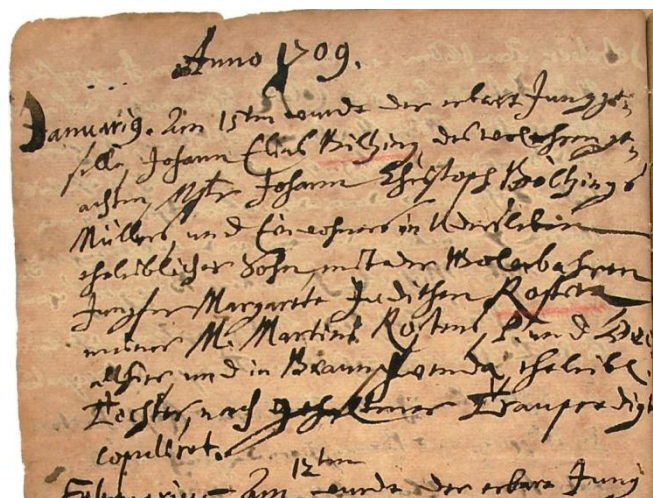 Anno 1709.
Januarig. Am 15ten wurde der erbare Jungge-
selle, Johann Elias Bölzing, des wolehrenge-
achten, Mstr Johann Christoph Bölzings
Müllers, und Einwohners in Udersleben
eheleiblicher Sohn, mit der Wolerbahren
Jungfer Margarete Judithen Rosten
meiner M. Martini Rostens, P. und
allhier, und in Braunsroda, eheleibl.
Tochter, nach gehaltener Traupredigt
copuliret.
Februarius Am 12ten wurde der erbare Jung